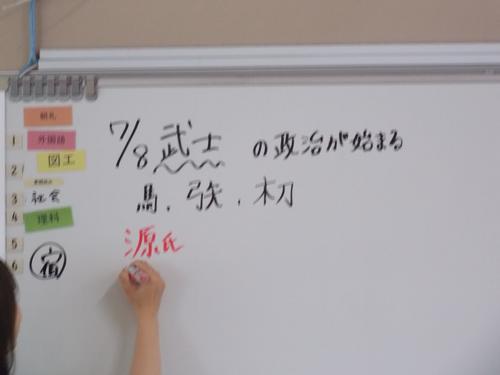 朝礼
1 外国語
2 図工
3 社会
4 理科
5
6 宿
7/8 武士の政治が始まる
馬、弓矢、木刀
源氏